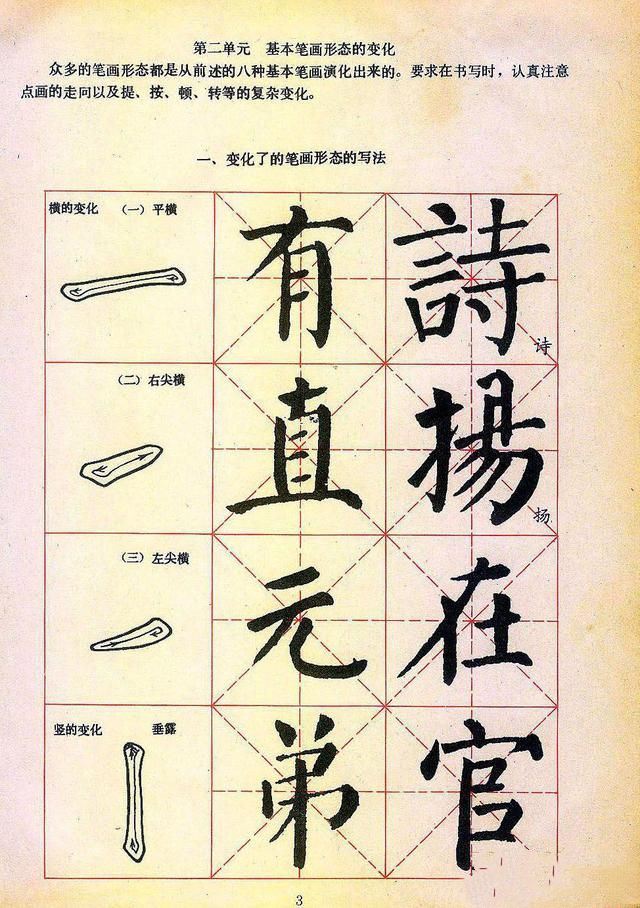 第二单元　基本笔画形态的变化
众多的笔画形态都是从前述的八种基本笔画演化出来的。要求在书写时，认真注意
点画的走向以及提、按、顿、转等的复杂变化。
一、变化了的笔画形态的写法
横的变化　（一）平横
有 詩 诗
（二）右尖横
直 揚 扬
（三）左尖横
元 在
竖的变化　垂露
弟 官
3